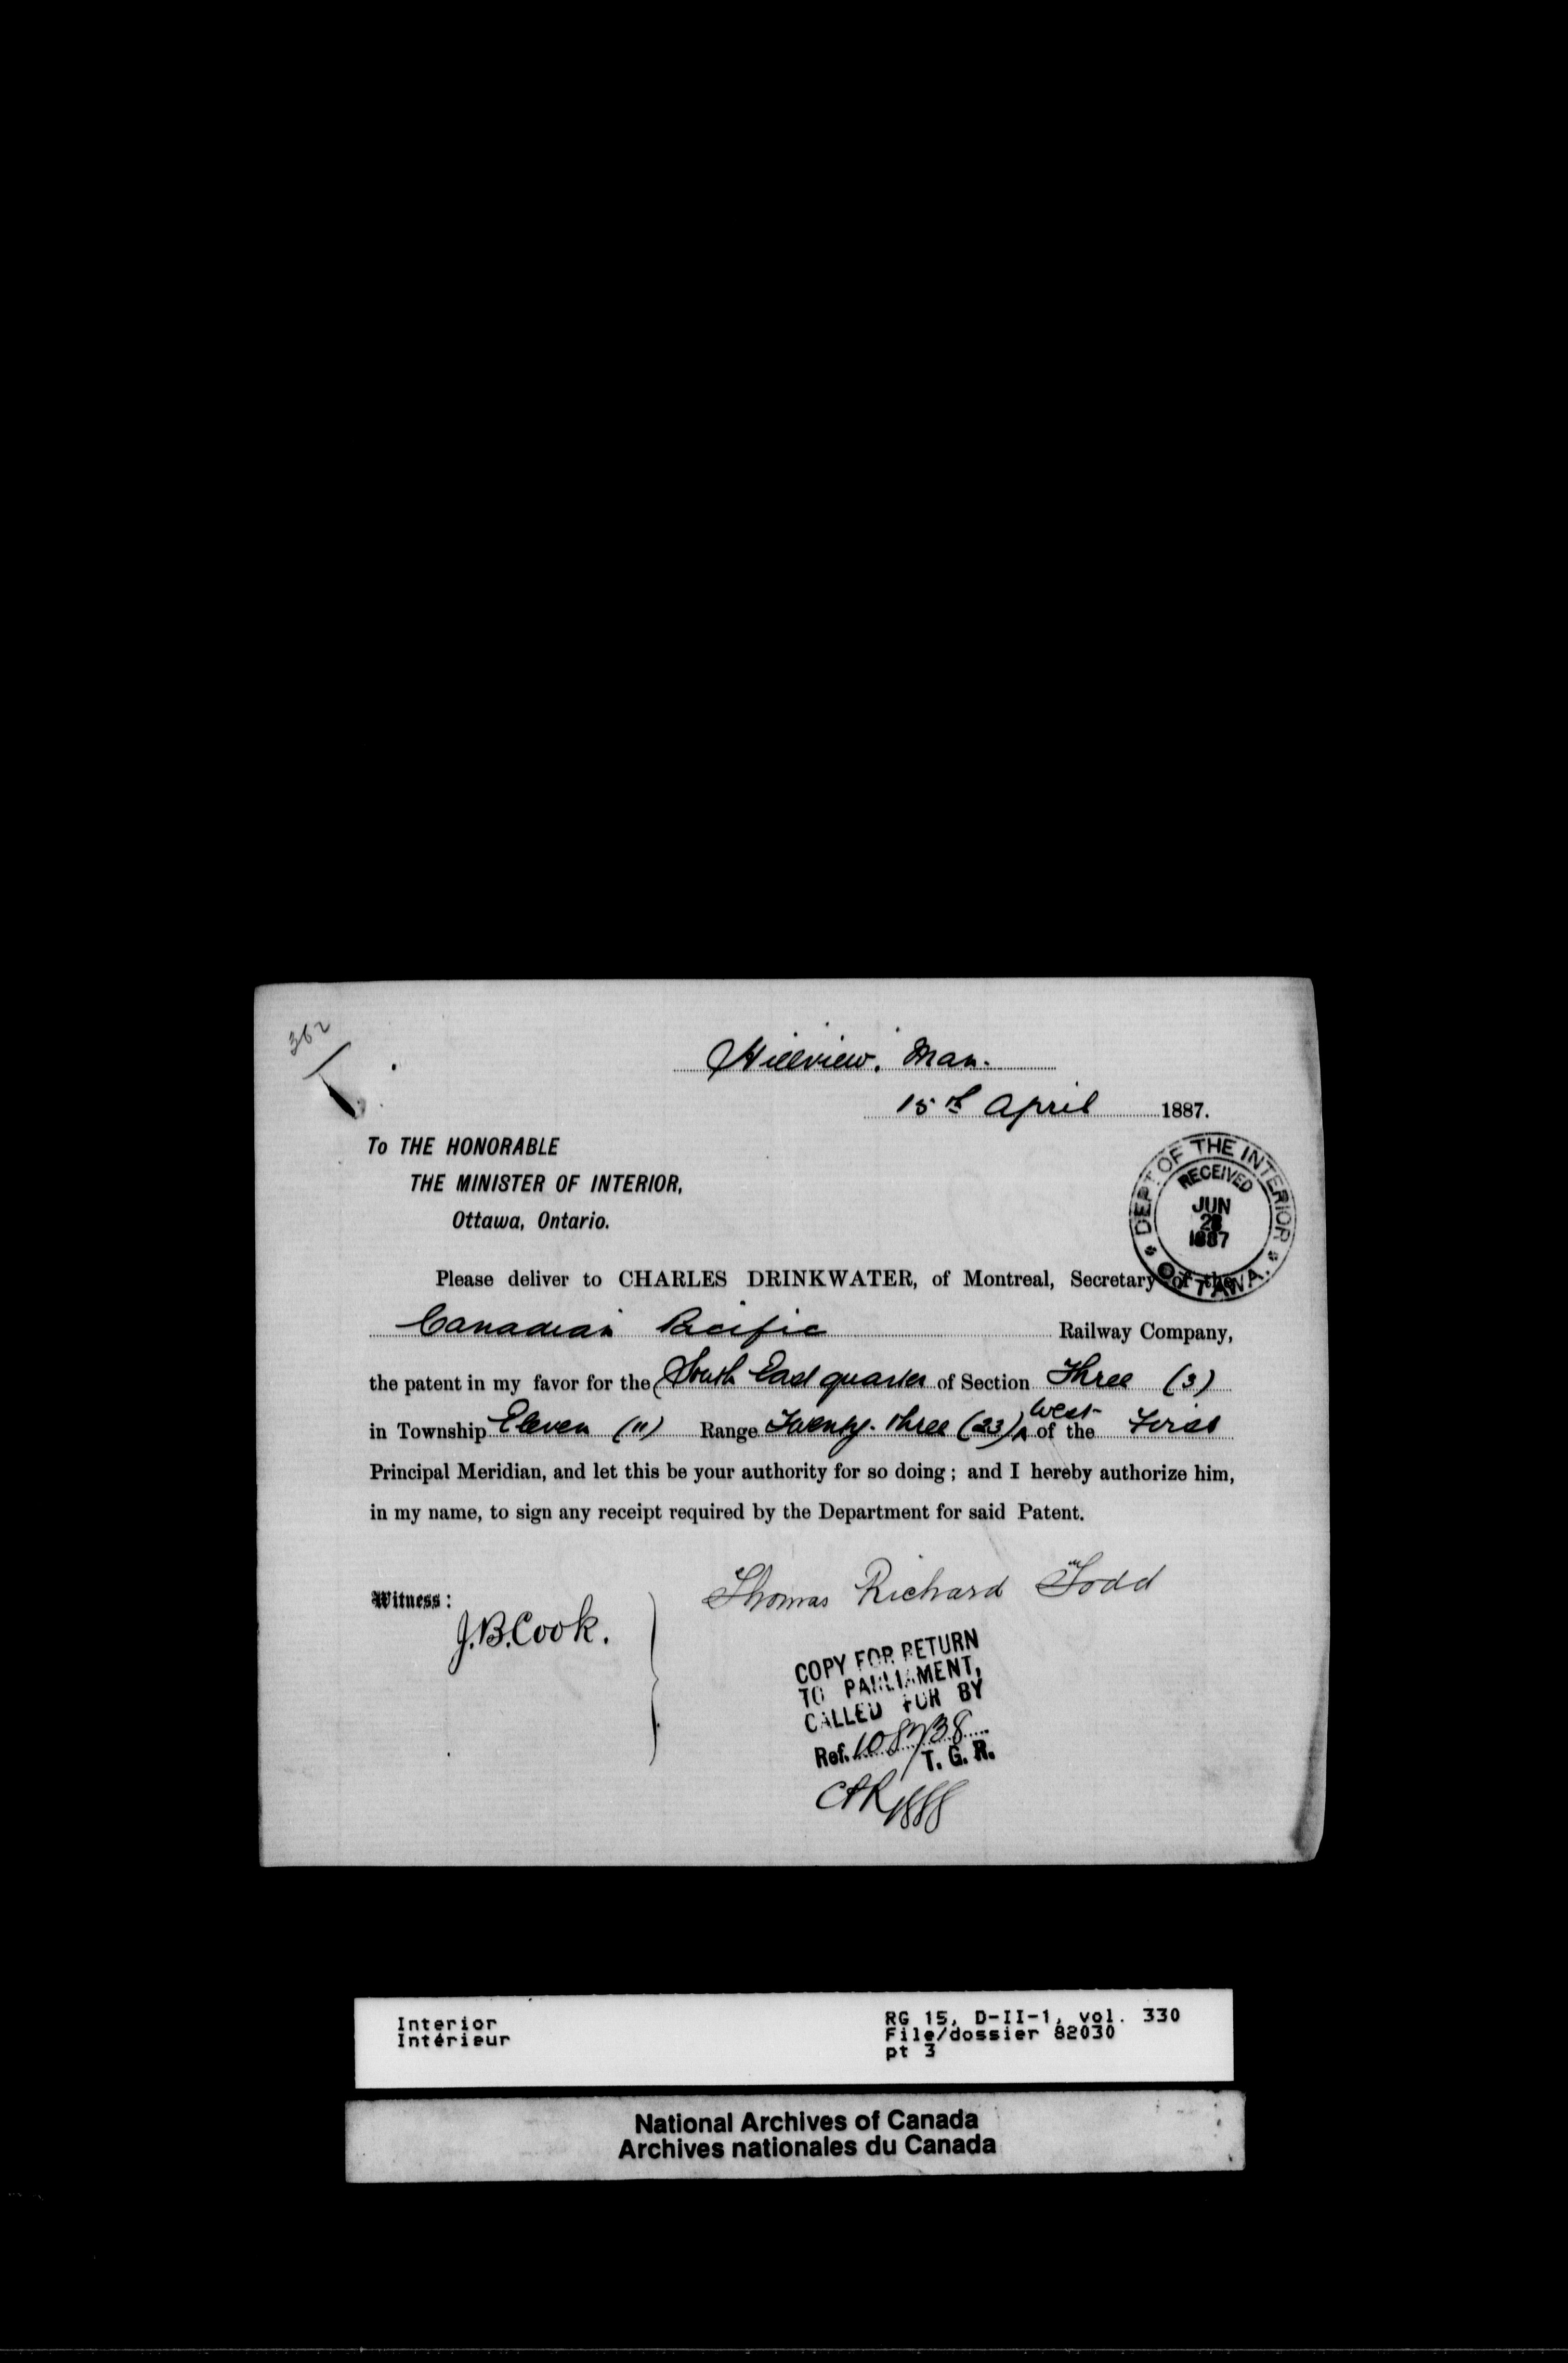 362
Hillview, Man.
15th April 1887.
To THE HONORABLE
THE MINISTER OF INTERIOR,
Ottawa, Ontario.
DEPT. OF THE INTERIOR
RECEIVED
JUN
1887
OTTAWA.
Please deliver to CHARLES DRINKWATER, of Montreal, Secretary of the
Canadian Pacific Railway Company,
the patent in my favor for the South East quarter of Section Three (3)
in Township Eleven (11) Range Twenty-three (23) West of the First
Principal Meridian, and let this be your authority for so doing; and I hereby authorize him,
in my name, to sign any receipt required by the Department for said Patent.
Thomas Richard Todd
Witness:
J.B. Cook.
COPY FOR RETURN
TO PARLIAMENT,
CALLED FOR BY
Ref.
T. G. R.
1888
Interior
Intérieur
RG 15, D-II-1, vol. 330
File/dossier 82030
pt 3
National Archives of Canada
Archives nationales du Canada